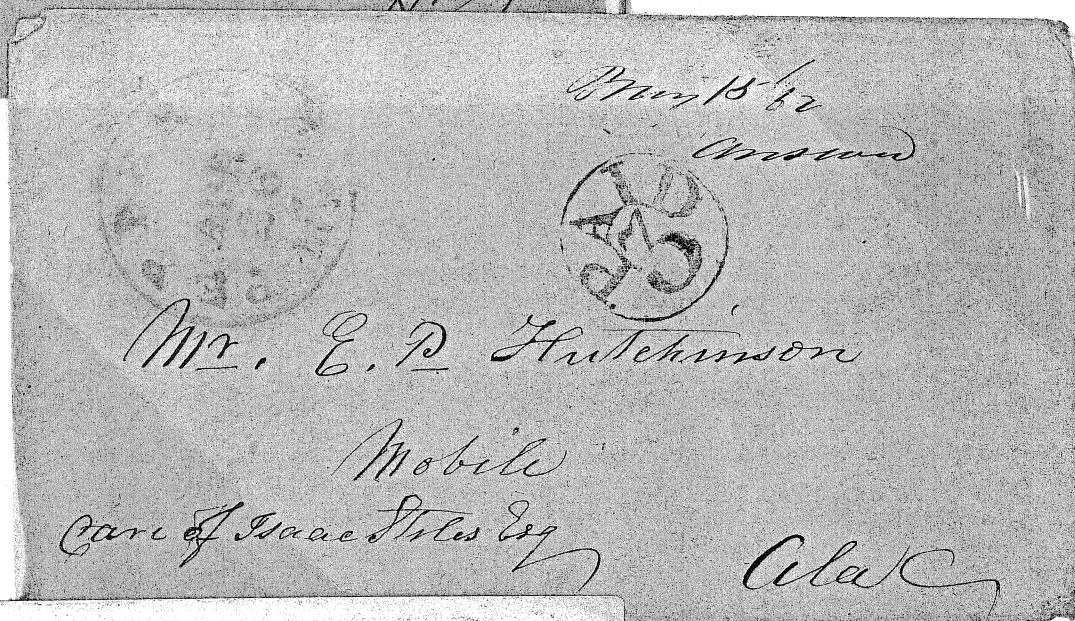 15/62
answered
PAID
5
Mr. E. P Hutchinson
Mobile
Care of Isaac Stiles Esq
Ala